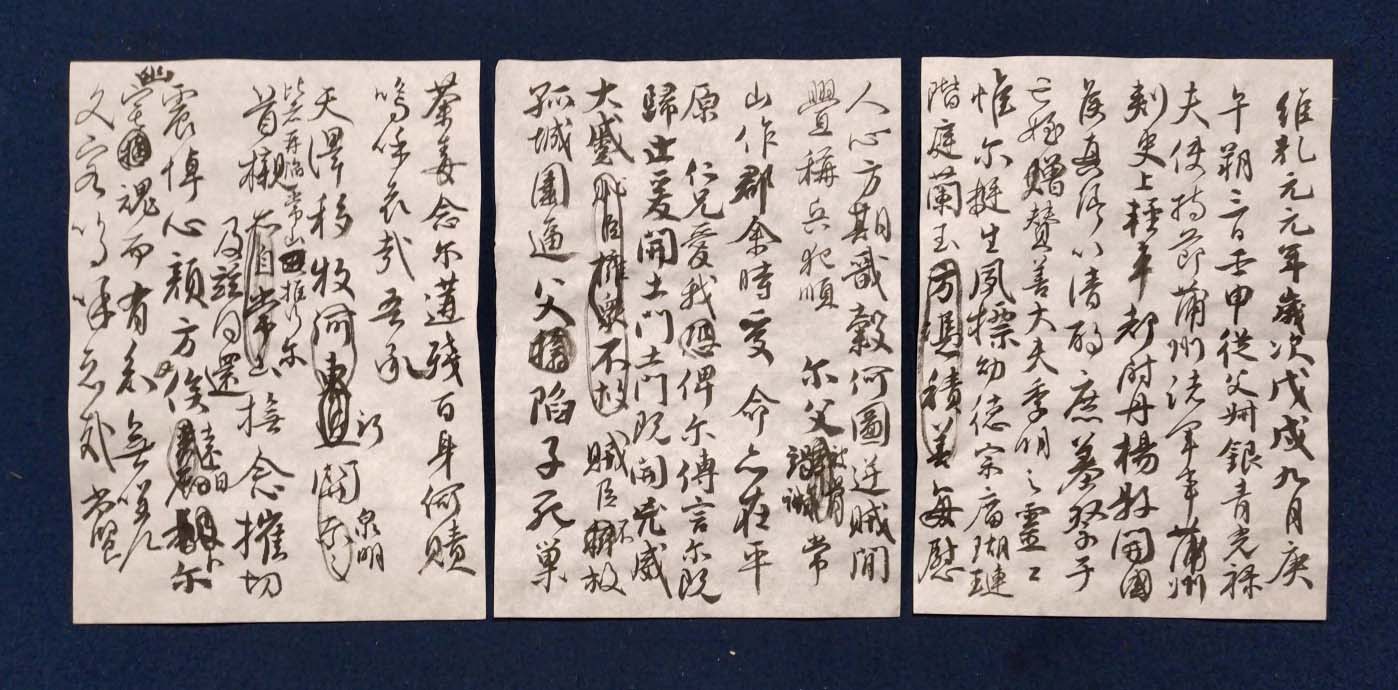 維乾元元年歲次戊戌九月庚
午朔三日壬申從父叔銀青光祿
夫使持節蒲州諸軍事蒲州
刺史上輕車都尉丹楊縣開國
侯真卿以清酌庶羞祭于
亡姪贈贊善大夫季明之靈曰
惟爾挺生夙標幼德宗廟瑚璉
階庭蘭玉方憑積善每慰
人心方期戩穀何圖逆賊間
釁稱兵犯順爾父竭誠常
山作郡余時受命亦在平
原仁兄愛我恐俾爾傳言爾既
歸止爰開土門土門既開兇威
大蹙賊臣擁眾不救賊臣不救
孤城圍逼父擒陷子死巢
荼毒念爾遘殘百身何贖
嗚呼哀哉吾承
天澤移牧河關泉明
比者再陷常山攜爾
首櫬及茲同還撫念摧切
震悼心顏方俟遠日卜爾
幽宅魂而有知無嗟
久客嗚呼哀哉尚饗